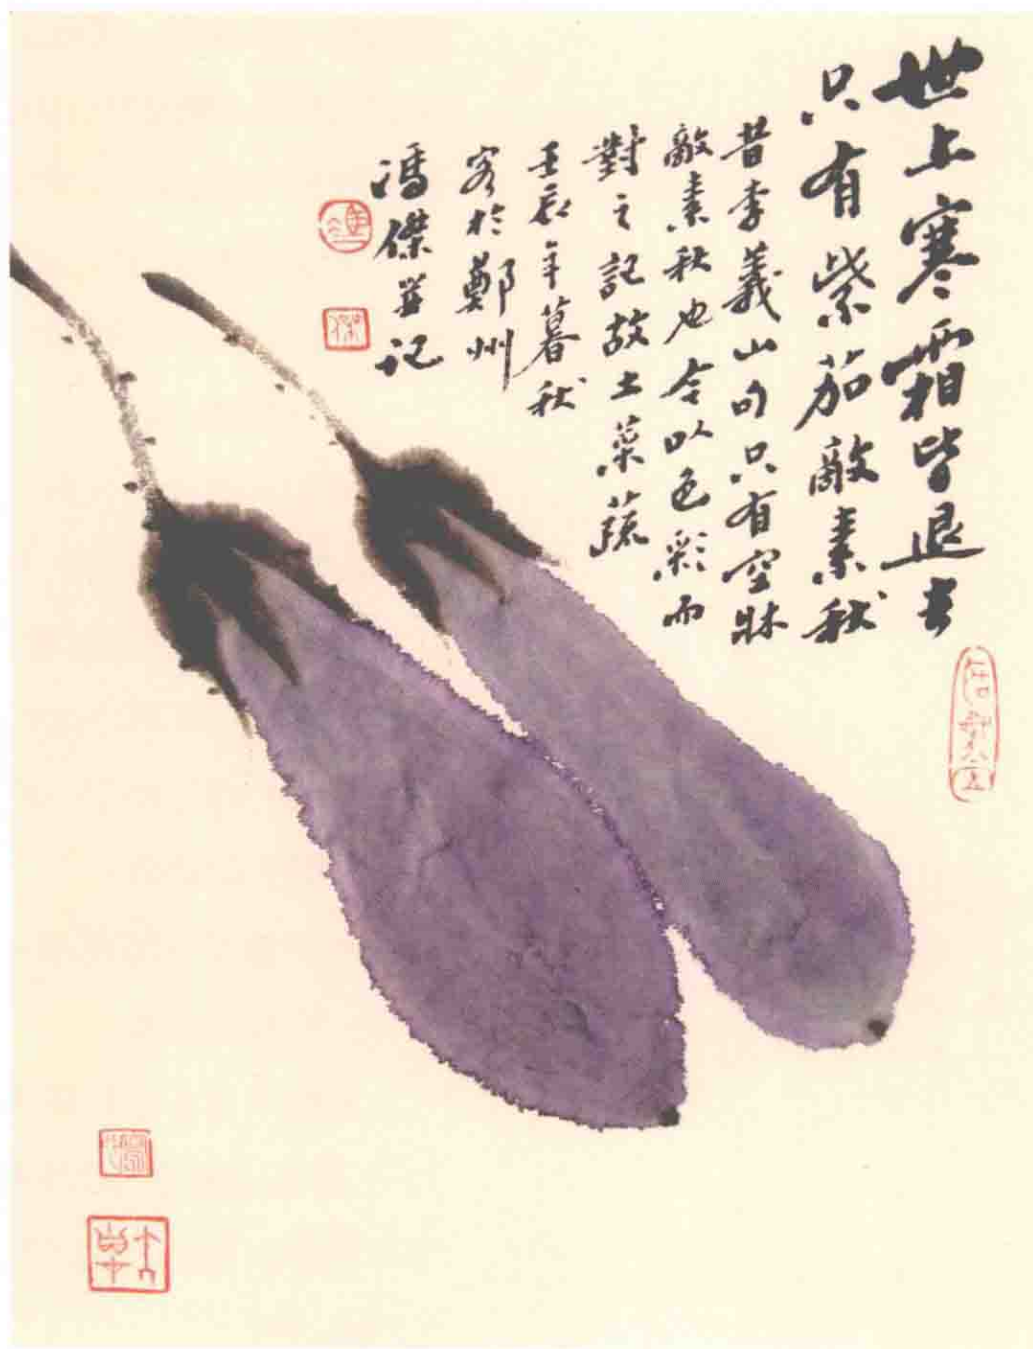 世上寒霜皆退去
只有紫茄敵素秋
昔李義山句只有空牀
敵素秋也今以色彩而
對之記故土菜蔬
壬辰年暮秋
客於鄭州
馮傑並記
馮
傑